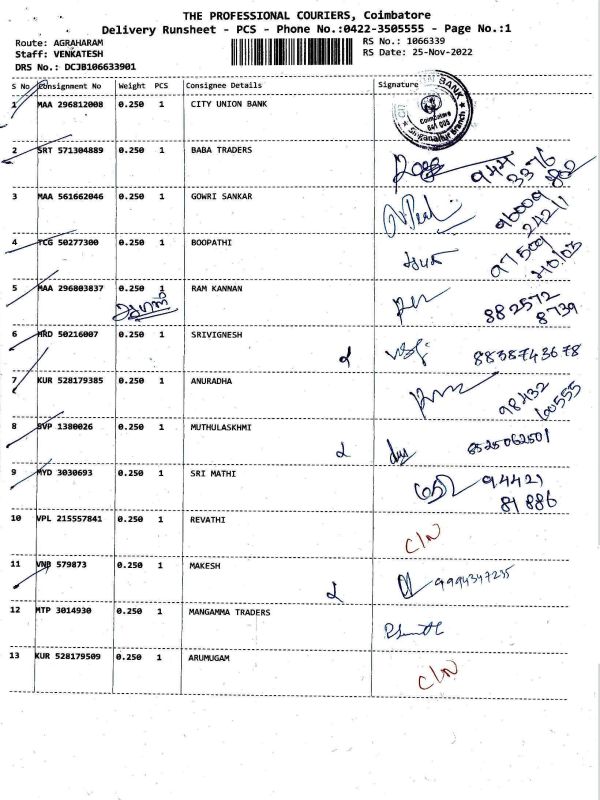 THE PROFESSIONAL COURIERS, Coimbatore
Delivery Runsheet - PCS - Phone No.:0422-3505555 - Page No.:1
Route: AGRAHARAM
RS No.: 1066339
Staff: VENKATESH
RS Date: 25-Nov-2022
DRS No.: DCJB106633901
S No Consignment No Weight PCS Consignee Details Signature
1 MAA 296812008 0.250 1 CITY UNION BANK
BANK
Coimbatore
641 005
Singanallur Branch
2 SRT 571304889 0.250 1 BABA TRADERS
3 MAA 561662046 0.250 1 GOWRI SANKAR
96009
24211
4 TCG 50277300 0.250 1 BOOPATHI
97509
5 MAA 296803837 0.250 1 RAM KANNAN
882572
8739
6 MRD 50216007 0.250 1 SRIVIGNESH
8838743678
7 KUR 528179385 0.250 1 ANURADHA
98432
60555
8 SVP 1380026 0.250 1 MUTHULASKHMI
8525062501
9 MYD 3030693 0.250 1 SRI MATHI
94421
81886
10 VPL 215557841 0.250 1 REVATHI
C/N
11 VNB 579873 0.250 1 MAKESH
9994347235
12 MTP 3014930 0.250 1 MANGAMMA TRADERS
13 KUR 528179509 0.250 1 ARUMUGAM
C/N